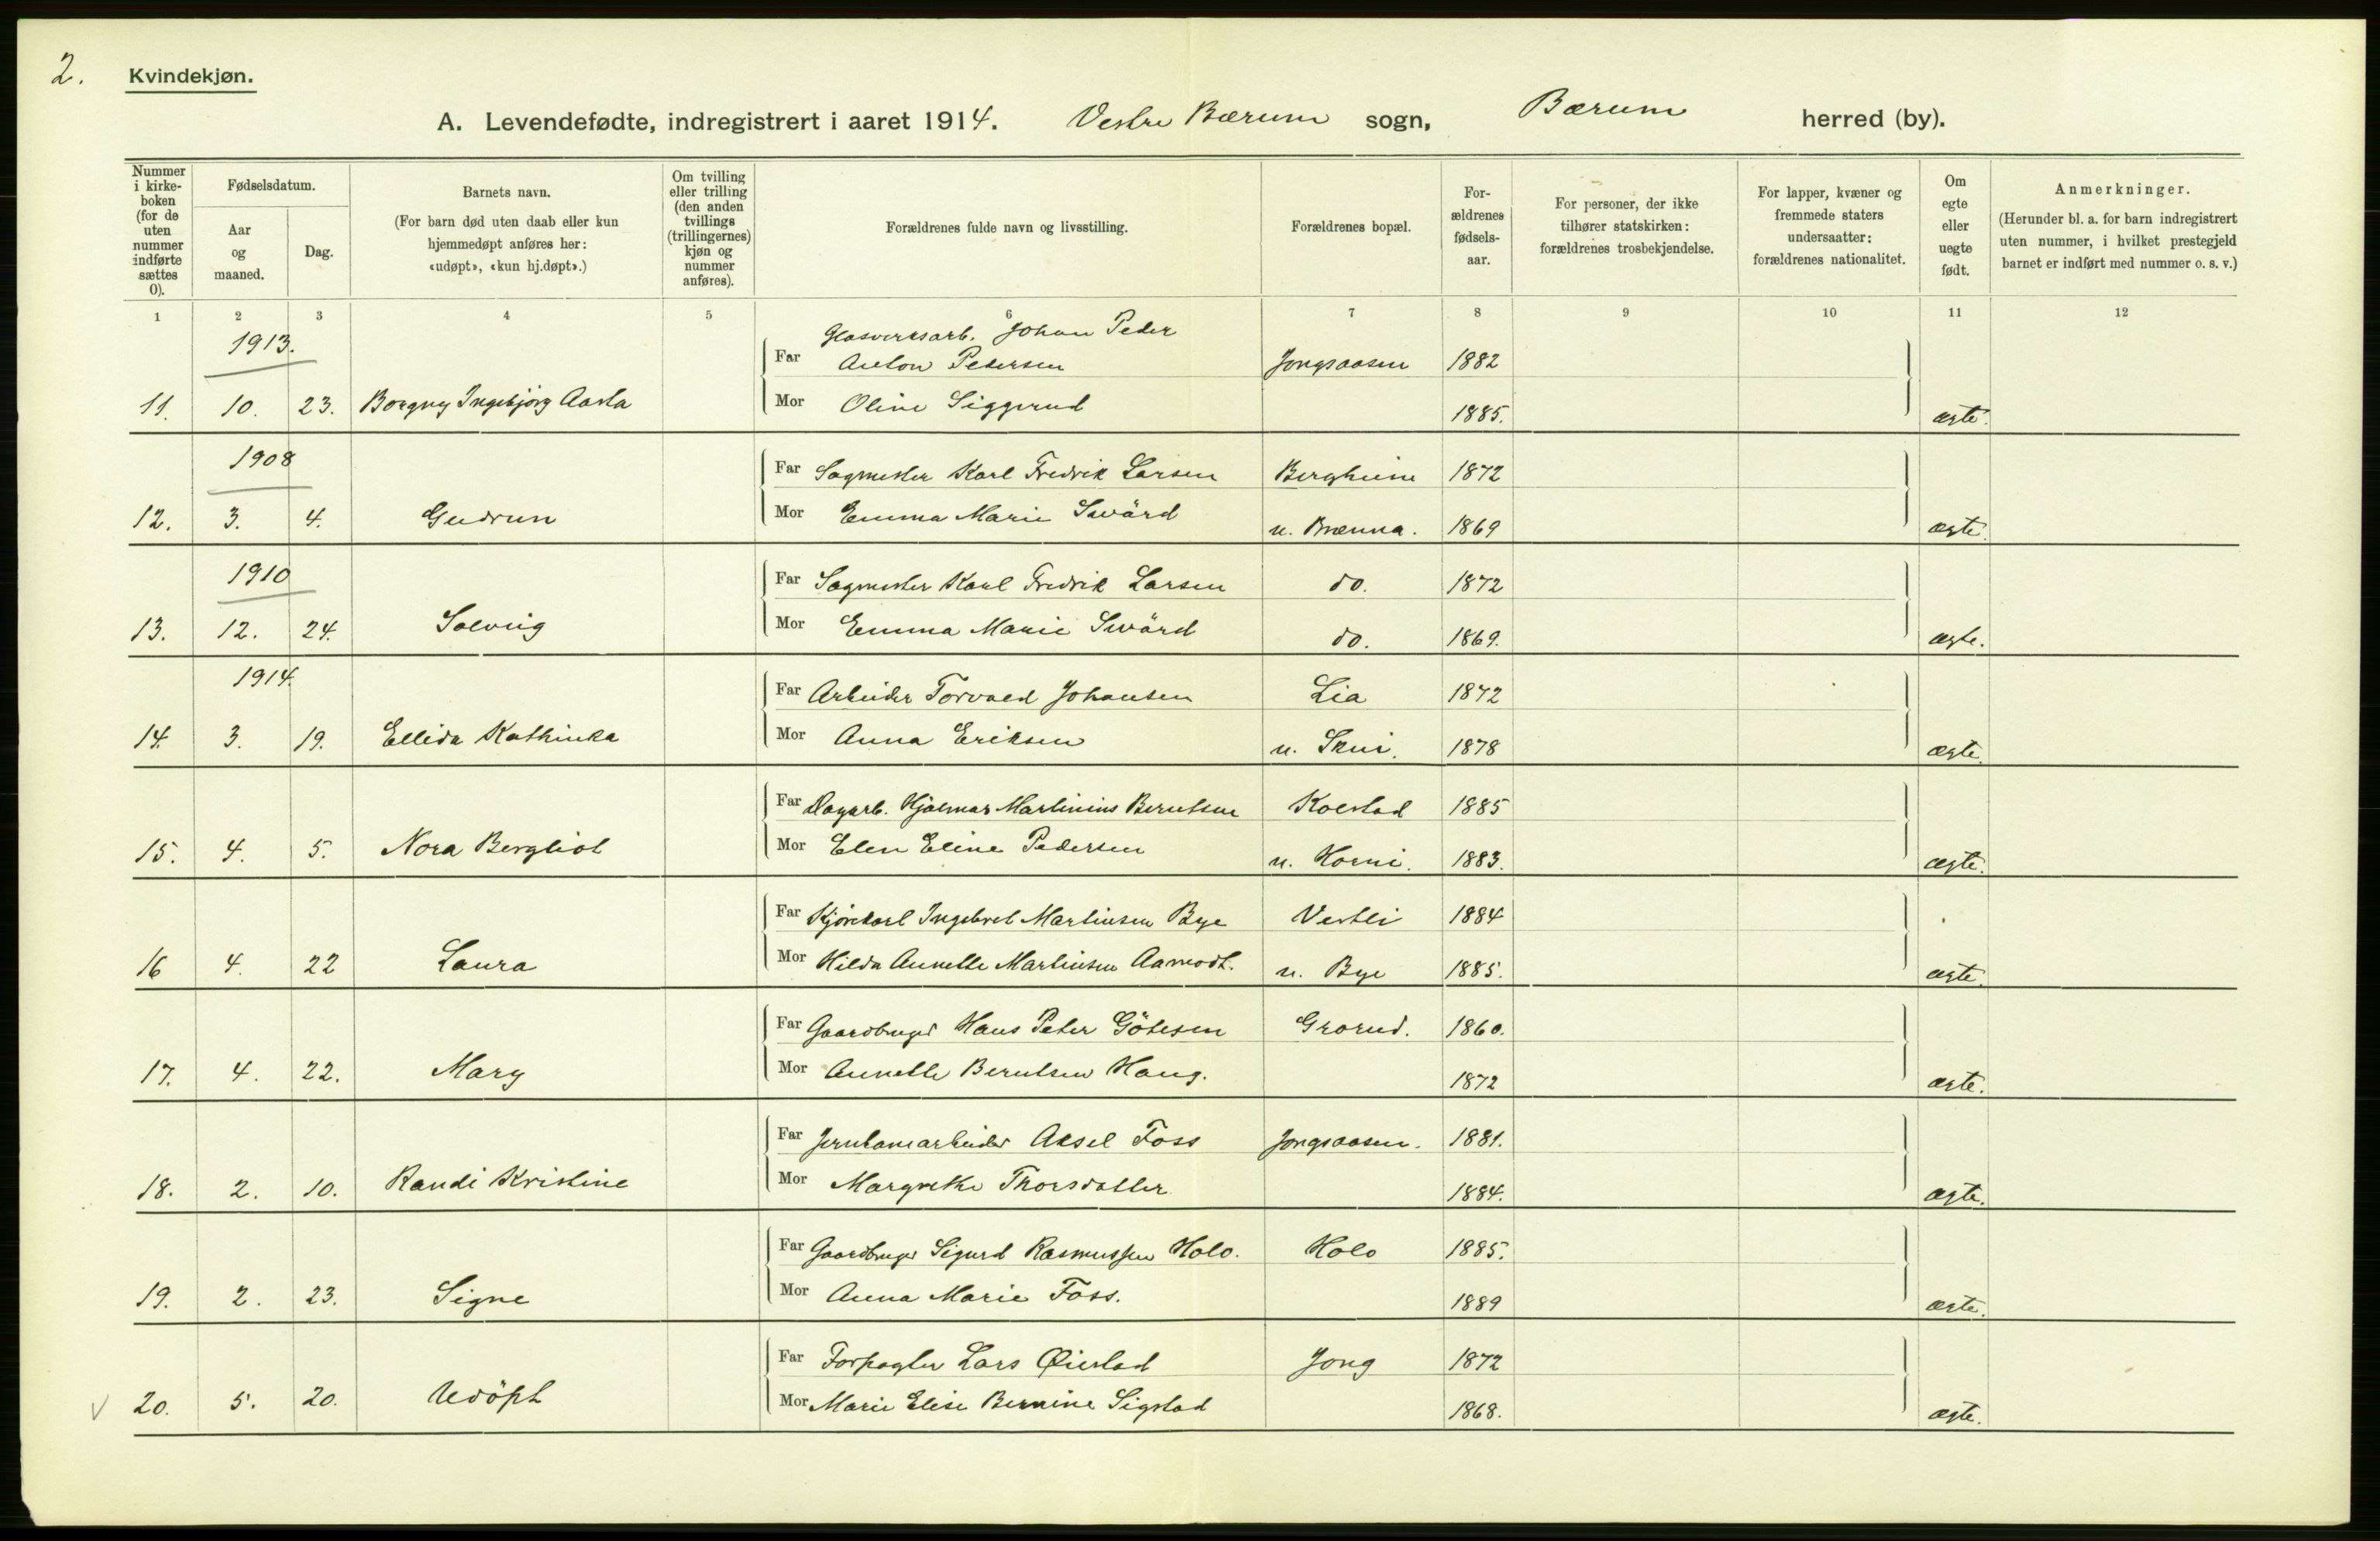 2.
Kvindekjøn.
A. Levendefødte, indregistrert i aaret 1914. Vestre Bærum sogn, Bærum herred (by).
Nummer i kirke-boken (for de uten nummer indførte sættes 0).
Fødselsdatum.
Aar og maaned.
Dag.
Barnets navn.
(For barn død uten daab eller kun hjemmedøpt anføres her: «udøpt», «kun hj.døpt».)
Om tvilling eller trilling (den anden tvillings (trillingernes) kjøn og nummer anføres).
Forældrenes fulde navn og livsstilling.
Forældrenes bopæl.
For-ældrenes fødsels-aar.
For personer, der ikke tilhører statskirken: forældrenes trosbekjendelse.
For lapper, kvæner og fremmede staters undersaatter: forældrenes nationalitet.
Om egte eller uegte født.
Anmerkninger.
(Herunder bl. a. for barn indregistrert uten nummer, i hvilket prestegjeld barnet er indført med nummer o. s. v.)
1 2 3 4 5 6 7 8 9 10 11 12
1913.
Glasverksarb. Johan Peder
Far Anton Pedersen Jongsaasen 1882
11. 10. 23. Borgny Ingebjørg Aasta Mor Oline Siggerud 1885. ægte.
1908
Far Sagmester Karl Fredrik Larsen Bergheim 1872
12. 3. 4. Gudrun Mor Emma Marie Swärd u. Brænna. 1869 ægte.
1910
Far Sagmester Karl Fredrik Larsen do. 1872
13. 12. 24. Solveig Mor Emma Marie Swärd do. 1869. ægte.
1914.
Far Arbeider Torvald Johansen Lia 1872
14. 3. 19. Ellida Kathinka Mor Anna Eriksen u. Skui. 1878 ægte.
Far Dagarb. Hjalmar Martinius Berntsen Kolstad 1885
15. 4. 5. Nora Bergliot Mor Elen Eline Pedersen u. Horni. 1883. ægte.
Far Kjørekarl Ingebret Martinsen Bye Vestli 1884
16 4. 22 Laura Mor Hilda Annette Martinsen Aamodt. u. Bye 1885. ægte.
Far Gaardbruger Hans Peter Götesen Grorud. 1860.
17. 4. 22. Mary Mor Annette Berntsen Haug. 1872 ægte.
Far Jernbanearbeider Aksel Foss Jongsaasen. 1881.
18. 2. 10. Randi Kristine Mor Margrethe Thorsdatter 1884. ægte.
Far Gaardbruger Sigurd Rasmussen Holo. Holo 1885.
19. 2. 23. Signe Mor Anna Marie Foss. 1889 ægte.
Far Forpagter Lars Øiestad Jong 1872
20. 5. 20. Udöpt Mor Marie Elise Bernine Sigstad 1868. ægte.